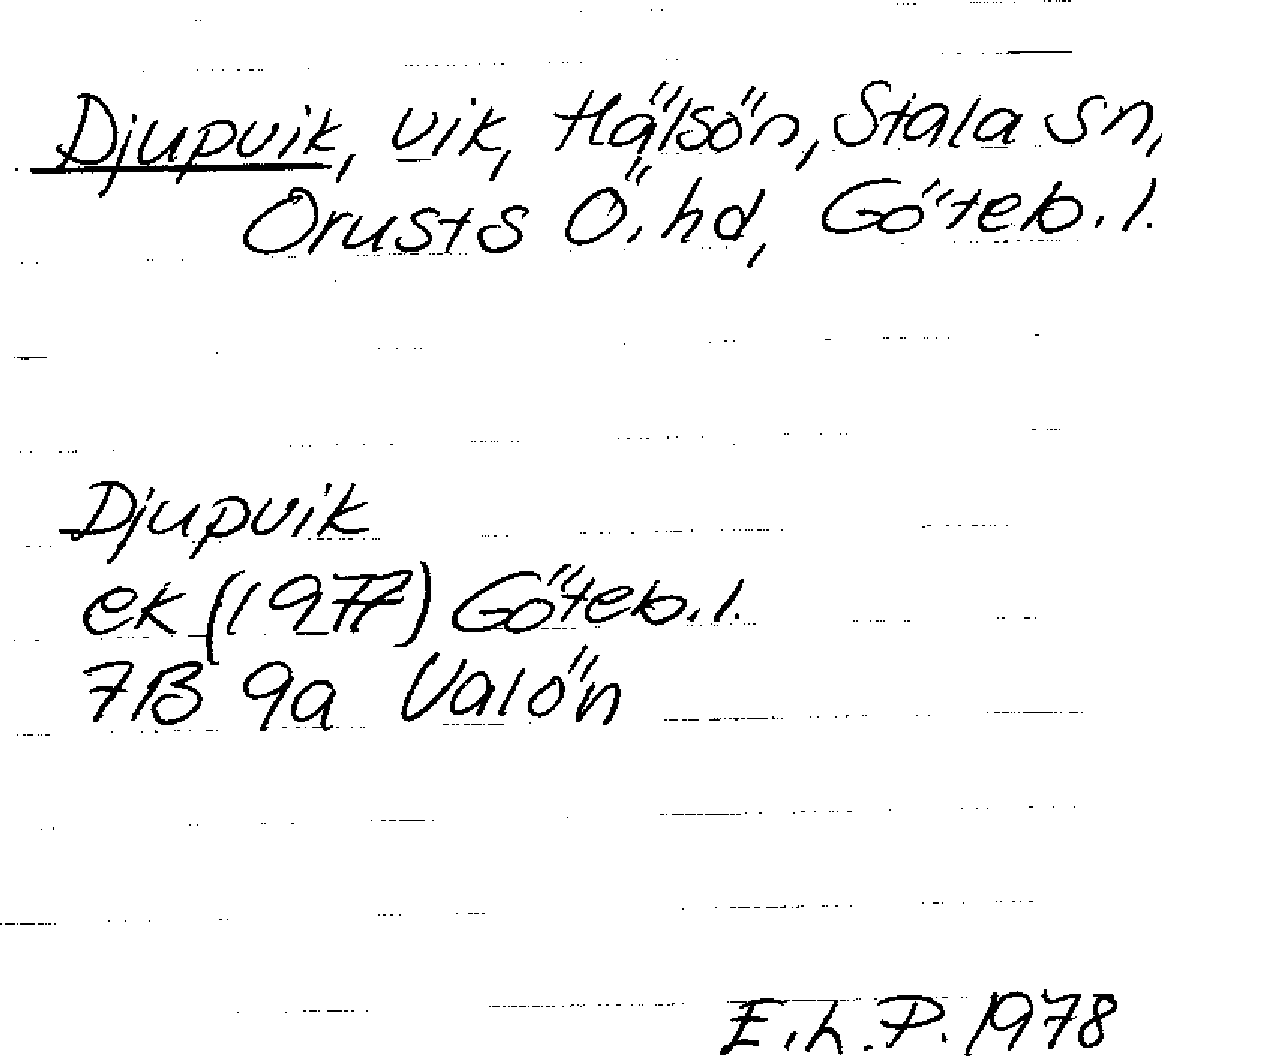 Djupvik, vik, Hälsön, Stala sn,
Orusts Ö. hd, Göteb. l.
Djupvik
ek (1977) Göteb. l.
7B 9a Valön
E.L.P. 1978